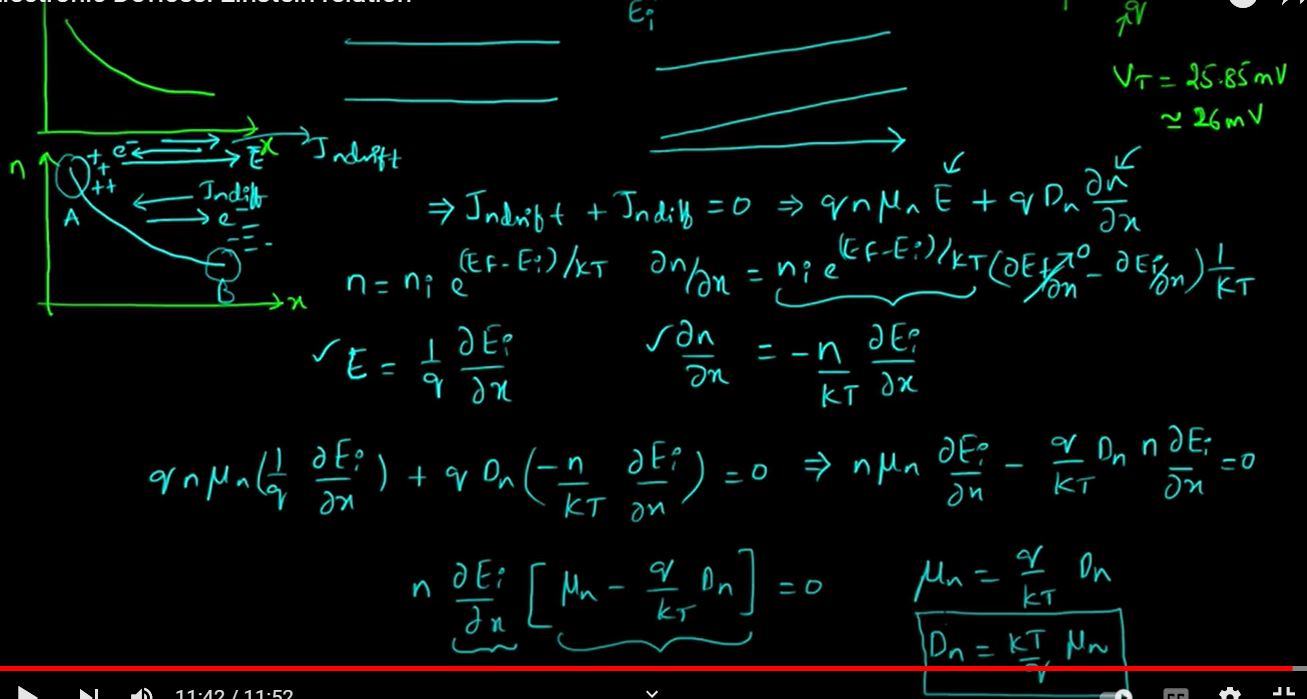 Electronic Devices: Einstein relation
Ei
q
VT = 25.85 mV
≃ 26 mV
x
n
++ e⁻ E Jndrift
++
Jndiff
A
e⁻
B
x
⇒ Jndrift + Jndiff = 0 ⇒ q n μn E + q Dn ∂n/∂x
n = ni e^(EF-Ei)/KT ∂n/∂x = ni e^(EF-Ei)/KT (∂EF/∂x →0 - ∂Ei/∂x) 1/KT
✓ E = 1/q ∂Ei/∂x ✓ ∂n/∂x = -n/KT ∂Ei/∂x
q n μn (1/q ∂Ei/∂x) + q Dn (-n/KT ∂Ei/∂x) = 0 ⇒ n μn ∂Ei/∂x - q/KT Dn n ∂Ei/∂x = 0
n ∂Ei/∂x [μn - q/KT Dn] = 0
μn = q/KT Dn
Dn = KT/q μn
11:42 / 11:52